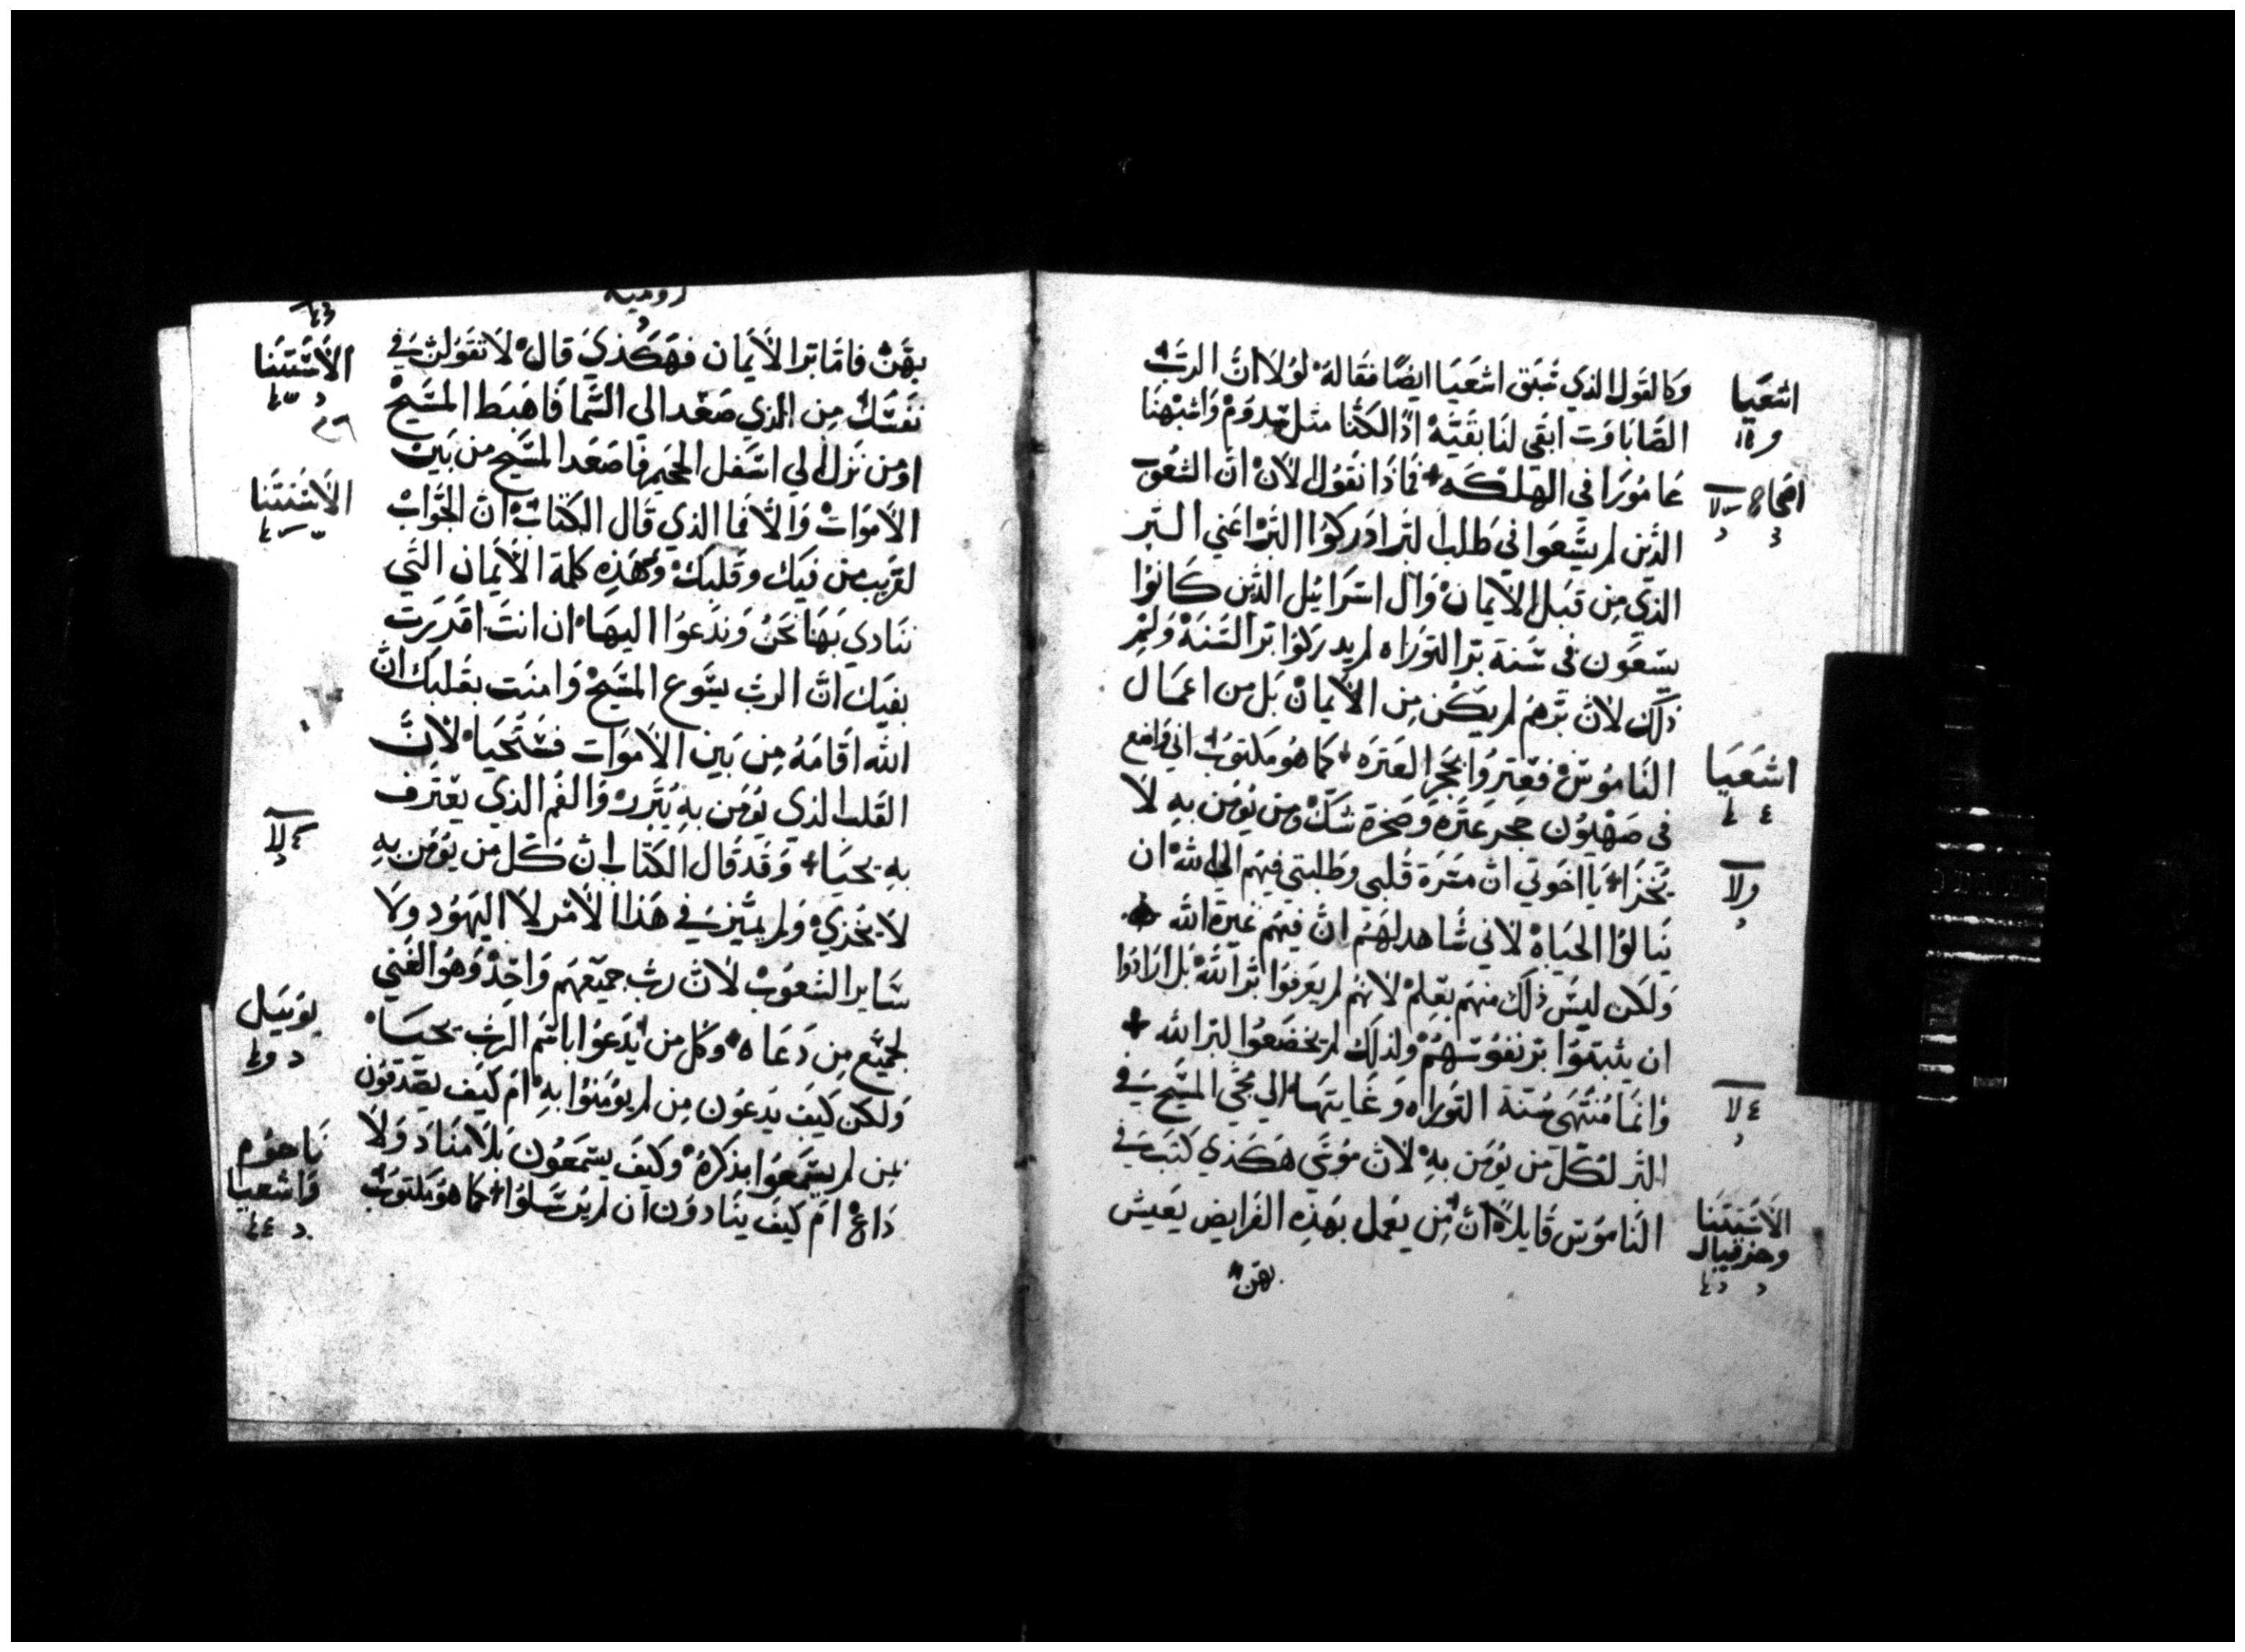 وكالقول الذي سَبَق اشعَيا ايضًا فقاله لولا ان الرَبّ
اشعَيا
الصَاباوت ابقى لنا بقيَّه اذًا لكنَّا مثل سدوم واشبهنا
عامورَا في الهلكه + فماذا نقول الان ان الشعوب
اصحاح
الذين لم يسعوا في طلب البَر ادركوا البَر اعني البَر
الذي من قبل الايمان وال اسرائيل الذين كانوا
يسعون في سنة بر التوراه لم يدركوا بر السُنه ولم
ذلك لان برهم لم يكن من الايمان بل من اعمال
الناموس فعثروا بحجر العثره + كما هو مكتوب اني واضع
اشعَيا
في صهيون حجر عثره وصخرة شك ومن يومن به لا
يخزا + يا اخوتي ان مسَرة قلبي وطلبتي فيهم الى الله ان
ينالوا الحياه لاني شاهد لهم ان فيهم غيرة الله
ولكن ليس ذلك منهم بعلم لانهم لم يعرفوا بر الله بل ارادوا
ان يثبتوا بر نفوسهم ولذلك لم يخضعوا لبر الله +
وانما منتهى سُنة التوراه وغايتها الي مجي المسيح في
البَر لكل من يومن به لان موسَى هكذي كتب في
الناموس قايلا ان من يعمل بهذه الفرايض يعيش
الاستتنا
وحزقيال
بهن
روميه
بهن فاما بر الايمان فهكذي قال لا تقولن في
الاستتنا
نفسَك من الذي صعد الى السَما فاهبط المسَيح
او من نزل الي اسفل الجحيم فاصعد المسَيح من بين
الاستتنا
الاموات والا فما الذي قال الكتاب ان الجواب
لقريب من فيك وقلبك وهذه كلمة الايمان التي
ننادي بها نحن وندعوا اليها ان انت اقررت
بفيك ان الرب يسَوع المسَيح وامنت بقلبك ان
الله اقامه من بين الاموات فستحيا لان
القلب الذي يومن به يتبرر والفم الذي يعترف
به يحيا + وقد قال الكتاب ان كل من يومن به
لا يخزي ولم يميز في هذا الامر لا اليهود ولا
سَاير الشعوب لان رب جميعهم واحد وهو الغني
لجميع من دعاه وكل من يدعوا باسم الرب يحيا
يوئيل
ولكن كيف يدعون من لم يومنوا به ام كيف يصدقون
بمن لم يسمعوا بذكره وكيف يسمعون بلا مناد ولا
ناحوم
واشعيا
داع ام كيف ينادون ان لم يرسلوا + كما هو مكتوب